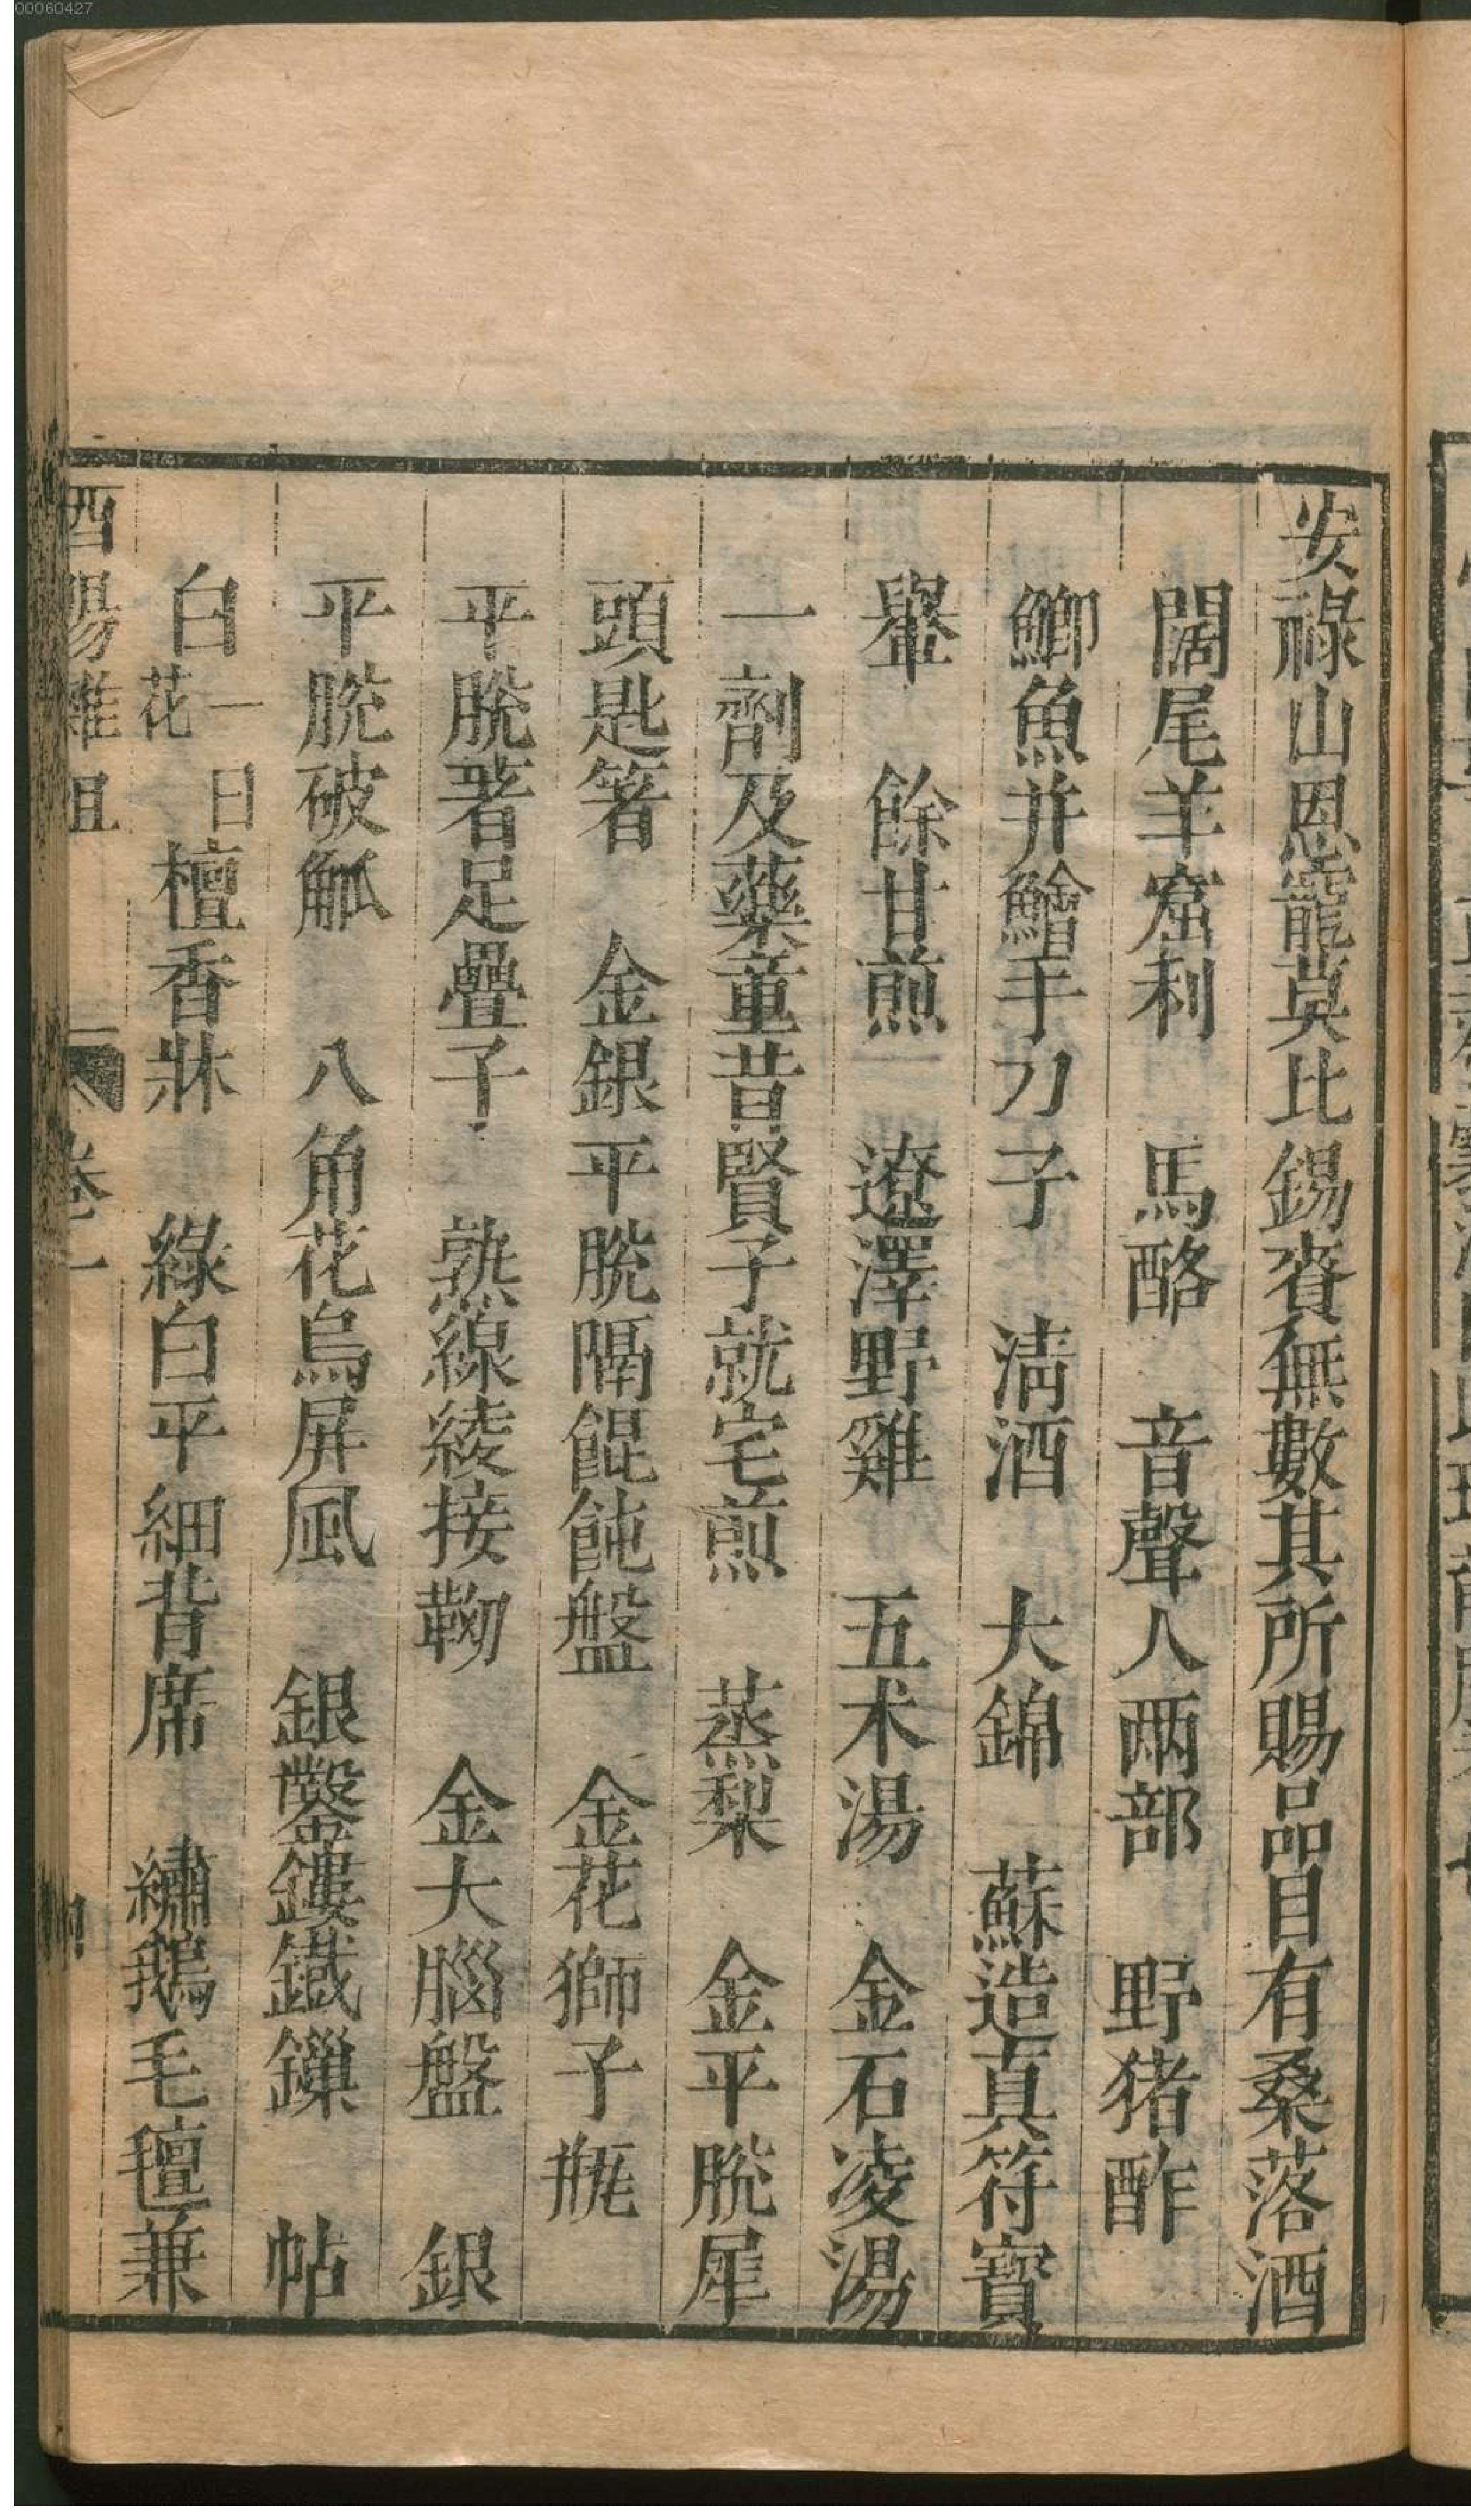 00060427
安祿山恩寵莫比錫賚無數其所賜品目有桑落酒
闊尾羊窟利 馬酪 音聲人兩部 野猪酢
鯽魚并鱠手刀子 清酒 大錦 蘇造真符寶
轝 餘甘煎 遼澤野雞 五术湯 金石凌湯
一劑及藥童昔賢子就宅煎 蒸梨 金平脫犀
頭匙箸 金銀平脫隔餛飩盤 金花獅子瓶
平脫著足疊子 熟線綾接䩕 金大腦盤 銀
平脫破觚 八角花烏屏風 銀鑿鏤鐵鏁 帖
白一曰花檀香牀 綠白平細背席 繡鵝毛氊兼
酉陽雜俎 卷一